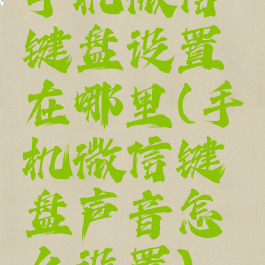 手机微信
键盘设置
在哪里(手
机微信键
盘声音怎
么设置)